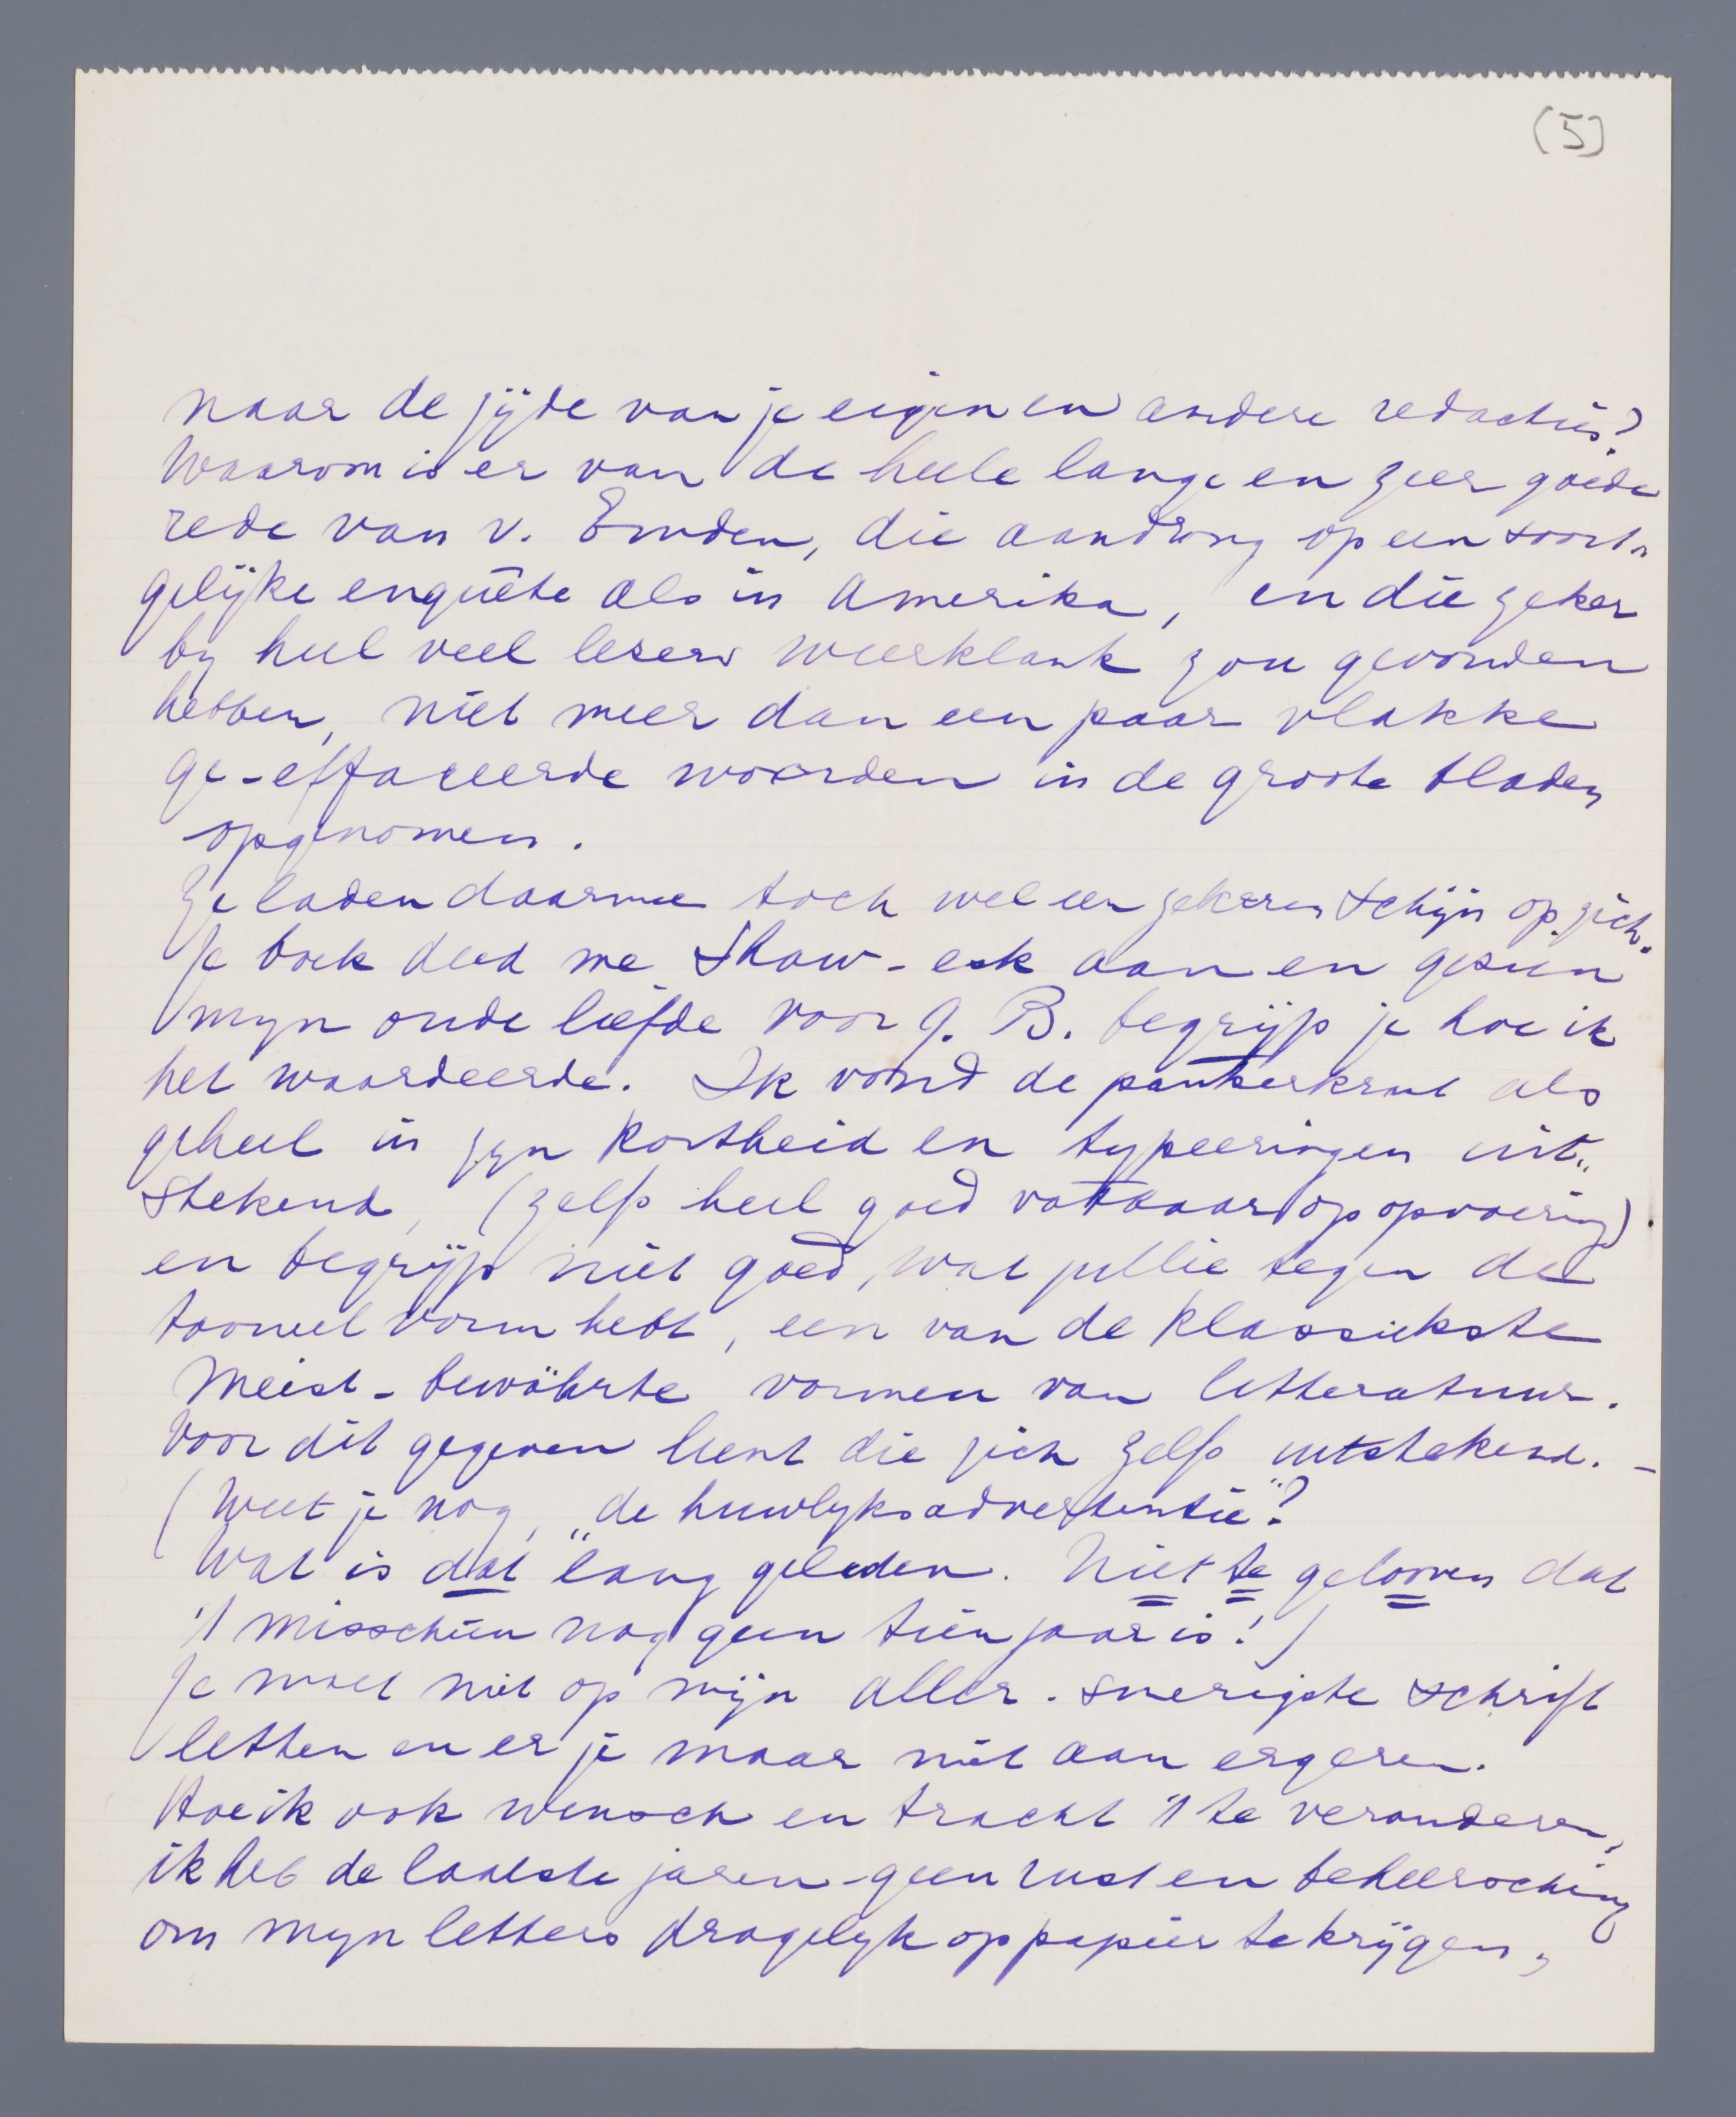 (5)
naar de zijde van je eigen en andere redacties?
Waarom is er van de heele lange en zeer goede
rede van v. Emden, die aandrong op een soort-
gelijke enquête als in Amerika, en die zeker
by heel veel lezers weerklank zou gevonden
hebben, niet meer dan een paar vlakke
ge-effaceerde woorden in de groote bladen
opgenomen.
Ze laden daarmee toch wel een zekeren schijn op zich.
Je boek deed me Shaw-esk aan en gezien
myn oude liefde voor G. B. begrijp je hoe ik
het waardeerde. Ik vond de pantserkrant als
geheel in zyn kortheid en typeeringen uit-
stekend, (zelfs heel goed vatbaar op opvoering).
en begrijp niet goed, wat jullie tegen de
tooneelvorm hebt, een van de klassiekste
meist-bewährte vormen van letteratuur.
Voor dit gegeven leent die zich zelfs uitstekend. -
(Weet je nog, „de huwlyksadvertentie"?
Wat is dat lang geleden. Niet te gelooven dat
't misschien nog geen tien jaar is!)
Je moet niet op mijn aller-smerigste schrift
letten en er je maar niet aan ergeren.
Hoe ik ook wensch en tracht 't te veranderen,
ik heb de laatste jaren geen rust en beheersching
om myn letters dragelyk op papier te krijgen,